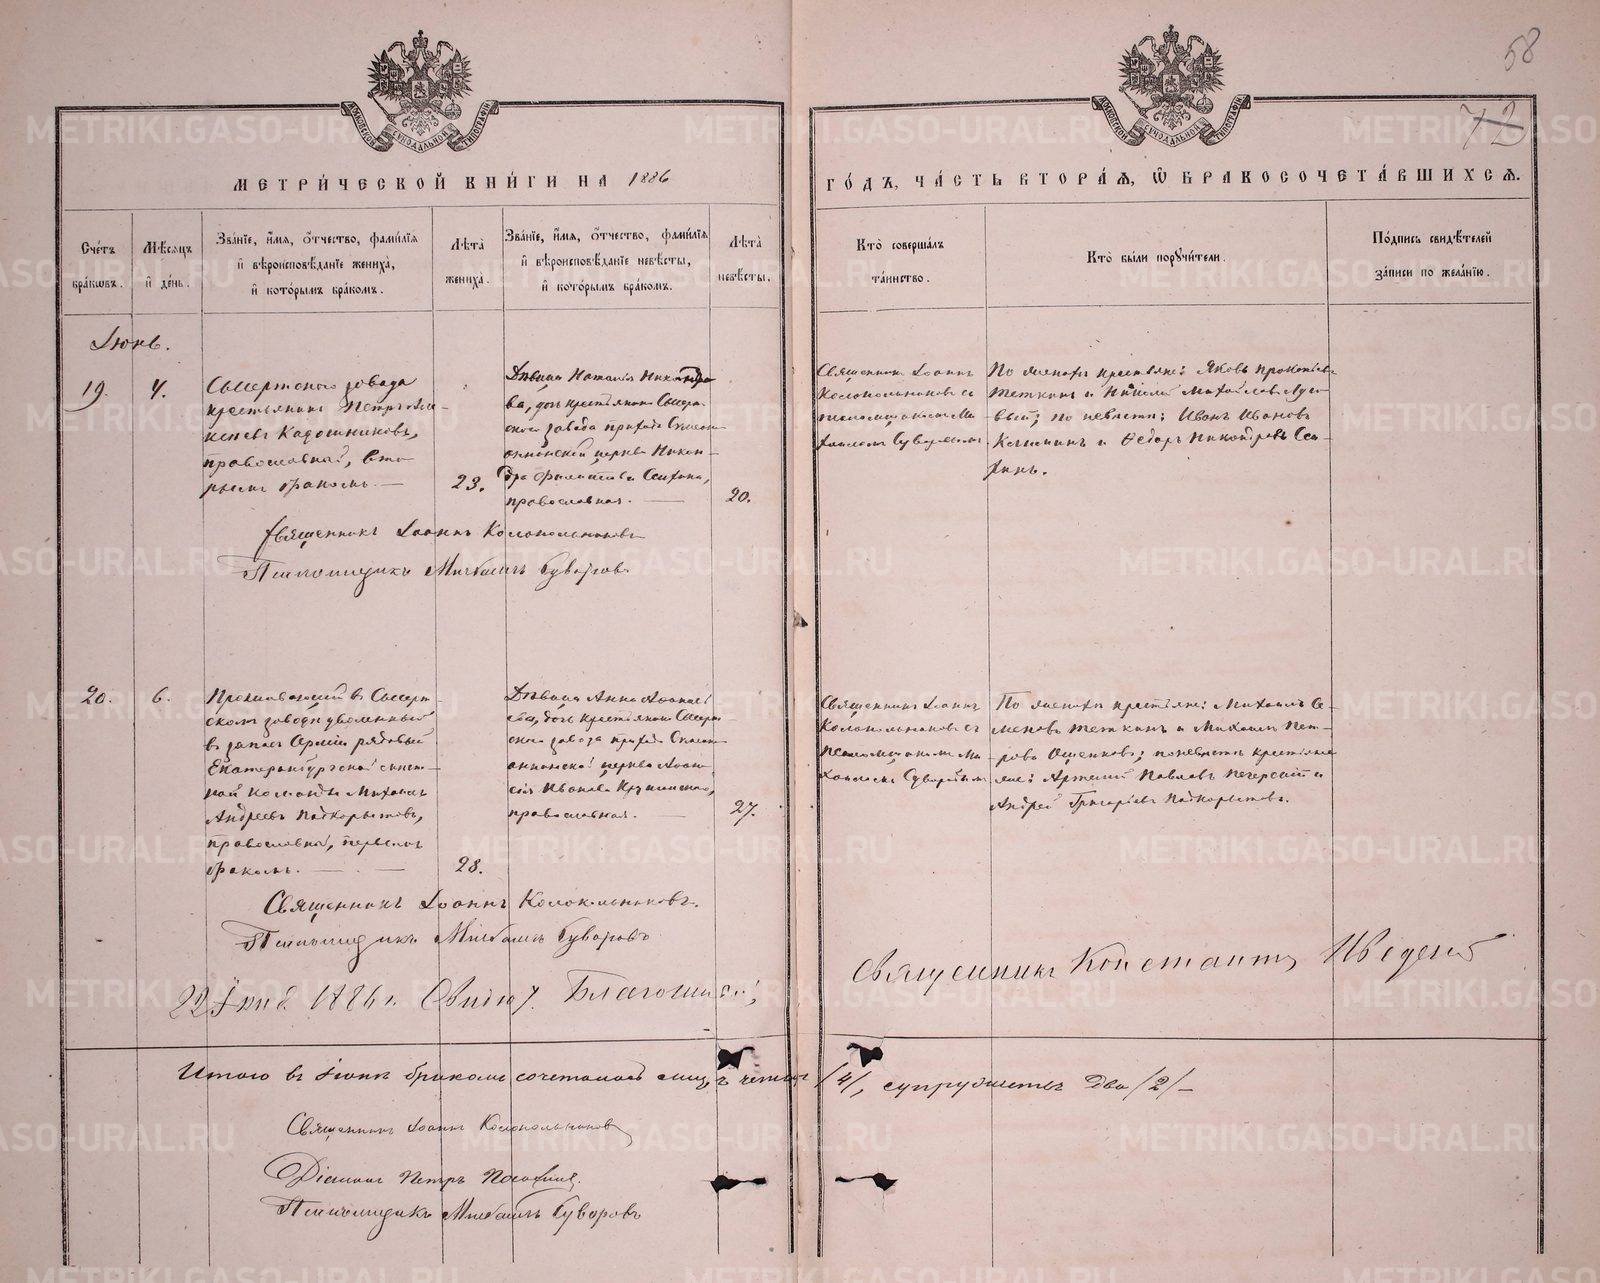 58
72
МЕТРИ́ЧЕСКОЙ КНИ́ГИ НА 1886
ГО́ДЪ, ЧА́СТЬ ВТОРА́Ѧ, Ѡ҆ БРАКОСОЧЕТА́ВШИХСѦ.
Сче́тъ бра́кѡвъ.
Мѣ́сѧцъ и҆ де́нь.
Зва́нїе, и҆́мѧ, ѻ҆́тчество, фами́лїѧ и҆ вѣроисповѣ́данїе жениха̀, и҆ кото́рымъ бра́комъ.
Лѣ́та̀ жениха̀.
Зва́нїе, и҆́мѧ, ѻ҆́тчество, фами́лїѧ и҆ вѣроисповѣ́данїе невѣ́сты, и҆ кото́рымъ бра́комъ.
Лѣ́та̀ невѣ́сты.
Кто̀ соверша́лъ та́инство.
Кто̀ бы́ли порꙋчи́тели.
По́дпись свидѣ́телей за́писи по жела́нїю.
Іюнь.
19.
4.
Сысертскаго завода
крестьянинъ Петръ
Кадошниковъ,
православный, вто-
рымъ бракомъ.
23.
Дѣвица Наталія Никандро-
ва, дочь крестьянина Сысерт-
скаго завода прихода Симеоно-
аннинской церкви Никан-
дра
православная.
20.
Священникъ Іоаннъ
Колокольниковъ съ
псаломщикомъ Ми-
хаиломъ Суворовымъ
По женихѣ крестьяне: Яковъ Прокопьевъ
Теткинъ и Михайловъ
по невѣстѣ: Иванъ Ивановъ
и Ѳедоръ Никандровъ
Священникъ Іоаннъ Колокольниковъ
Псаломщикъ Михаилъ Суворовъ
20.
6.
Проживающій въ Сысерт-
скомъ заводѣ уволенный
въ запасъ Арміи рядовый
Екатеринбургской
ной команды Михаилъ
Андреевъ Подкорытовъ,
православный, первымъ
бракомъ.
28.
Дѣвица Анна Аѳанасі-
ева, дочь крестьянина Сысерт-
скаго завода прихода Симеоно-
аннинской церкви Аѳана-
сія Иванова
православная.
27.
Священникъ Іоаннъ
Колокольниковъ съ
псаломщикомъ Ми-
хаиломъ Суворовымъ
По женихѣ крестьяне: Михаилъ Се-
меновъ Теткинъ и Михаилъ Пет-
ровъ по невѣстѣ крестья-
не: Артемій Павловъ Печерскій и
Андрей Григорьевъ Подкорытовъ.
Священникъ Іоаннъ Колокольниковъ.
Псаломщикъ Михаилъ Суворовъ
22 1886 г. Благочинный,
Священникъ Константинъ
Итого въ Іюнѣ бракомъ сочеталось лицъ четыре /4/, супружествъ два /2/
Священникъ Іоаннъ Колокольниковъ
Діаконъ Петръ
Псаломщикъ Михаилъ Суворовъ
METRIKI.GASO-URAL.RU